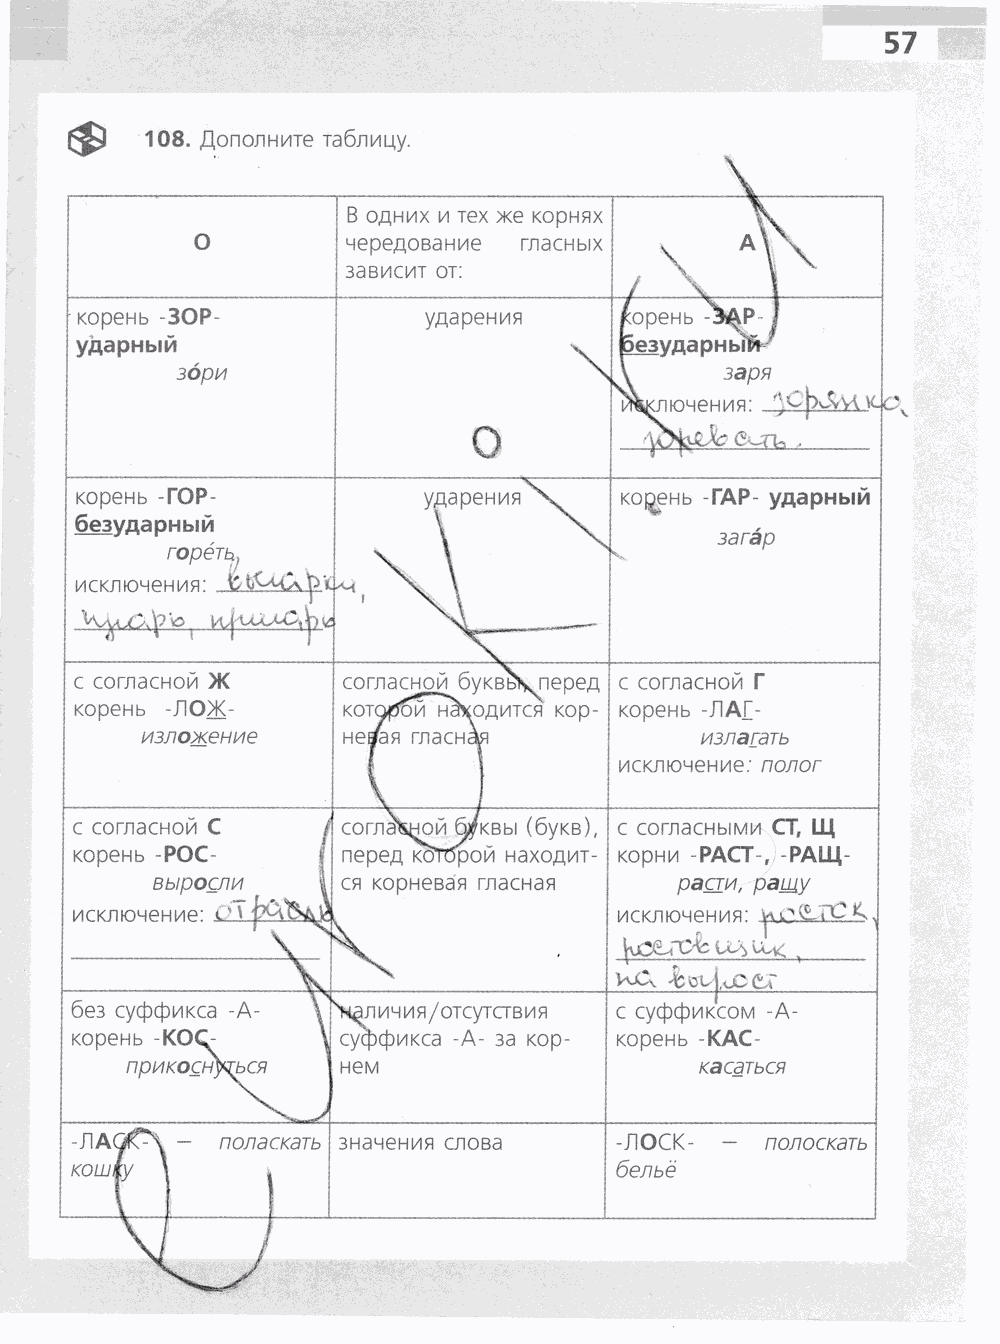 57
108. Дополните таблицу.
О
В одних и тех же корнях
чередование гласных
зависит от:
А
корень -ЗОР-
ударный
зо́ри
ударения
корень -ЗАР-
безударный
заря
исключения: зорянка,
зоревать.
корень -ГОР-
безударный
горе́ть,
исключения: выгарки,
изгарь, пригарь
ударения
корень -ГАР- ударный
зага́р
с согласной Ж
корень -ЛОЖ-
изложение
согласной буквы, перед
которой находится кор-
невая гласная
с согласной Г
корень -ЛАГ-
излагать
исключение: полог
с согласной С
корень -РОС-
выросли
исключение: отрасль
согласной буквы (букв),
перед которой находит-
ся корневая гласная
с согласными СТ, Щ
корни -РАСТ-, -РАЩ-
расти, ращу
исключения: росток,
ростовщик,
на вырост
без суффикса -А-
корень -КОС-
прикоснуться
наличия/отсутствия
суффикса -А- за кор-
нем
с суффиксом -А-
корень -КАС-
касаться
-ЛАСК- — поласкать
кошку
значения слова
-ЛОСК- — полоскать
бельё